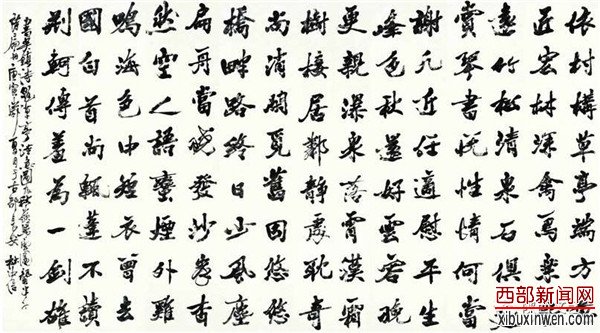 依村構草亭端方
匠宏林深禽鳥樂
遠竹松清泉石俱
賞琴書悦性情何當
謝凡近任適慰平生
峰色秋還好雲容晚
更親瀑泉落霄漢霜
樹接居鄰靜處耽奇
尚清閒覓舊因悠悠
橋畔路終日少風塵
扁舟當曉發沙岸杳
然空人語蠻煙外雞
鳴海色中短衣曾去
國白首尚飄蓬不讀
荊軻傳羞為一劍雄
西部新闻网
xibuxinwen.com